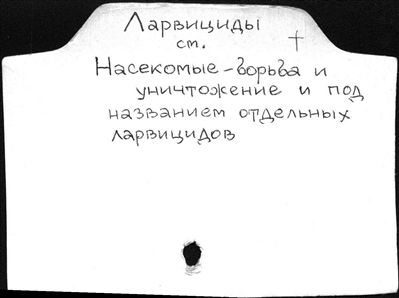 Ларвициды
см. †
Насекомые-борьба и
уничтожение и под
названием отдельных
ларвицидов